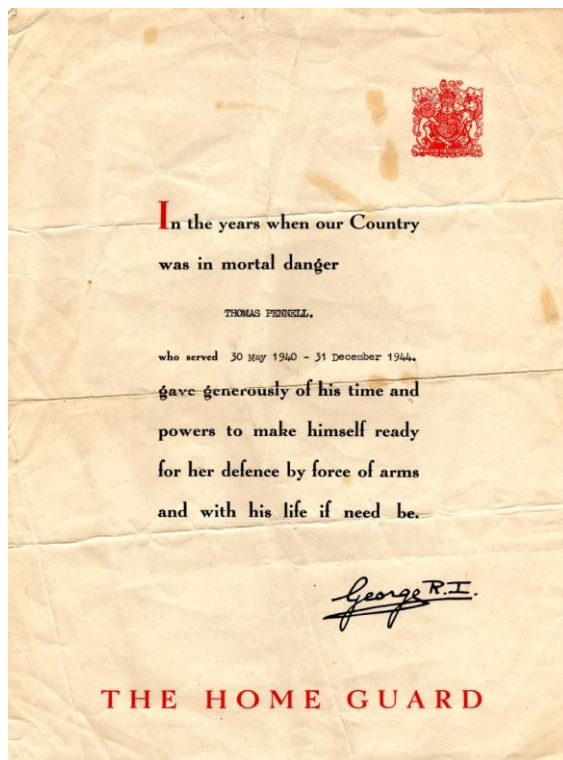 In the years when our Country
was in mortal danger
THOMAS PENNELL.
who served 30 May 1940 - 31 December 1944.
gave generously of his time and
powers to make himself ready
for her defence by force of arms
and with his life if need be.
George R.I.
THE HOME GUARD